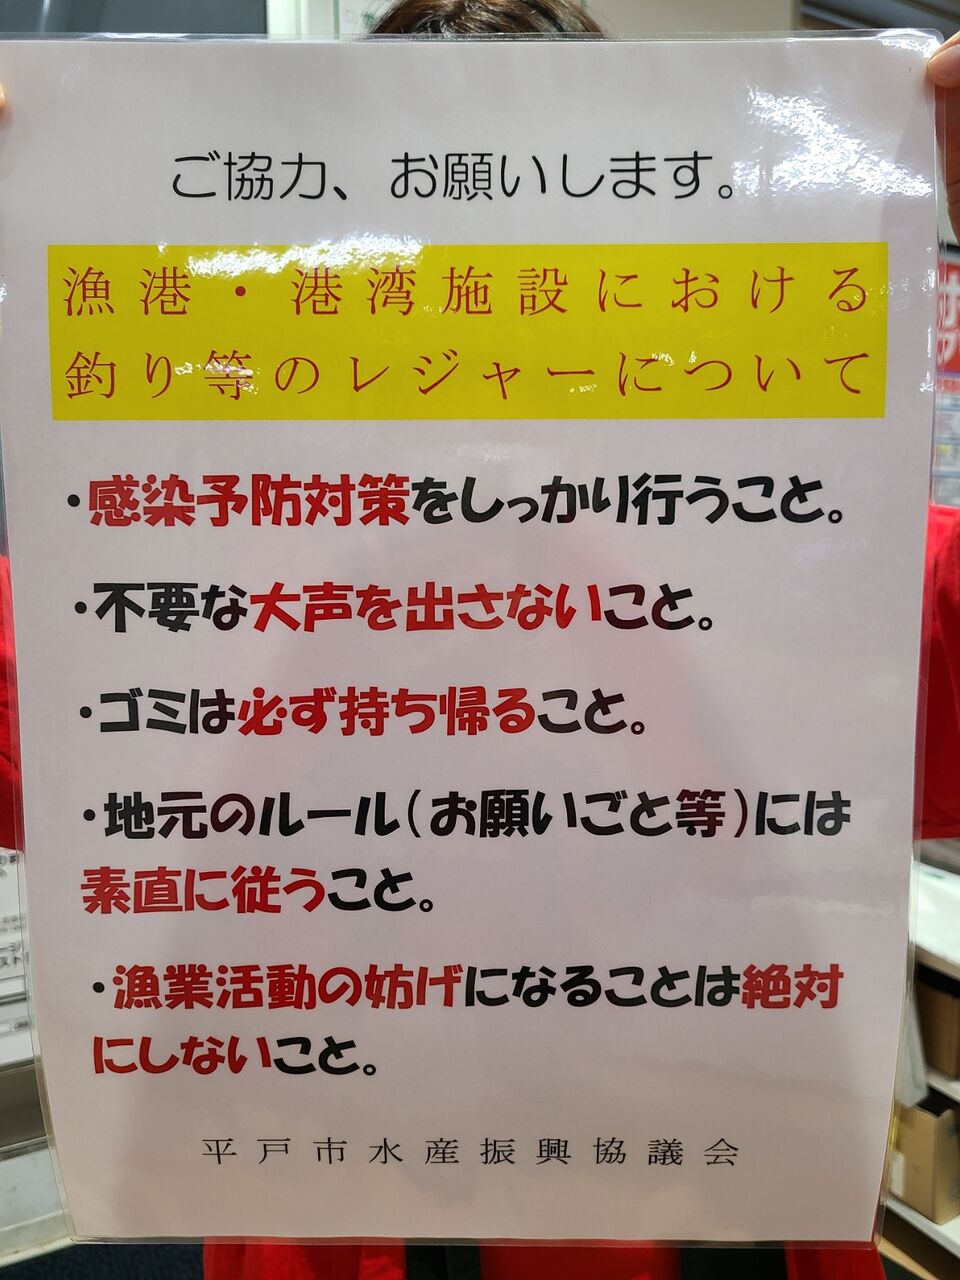 ご協力、お願いします。
漁港・港湾施設における
釣り等のレジャーについて
・感染予防対策をしっかり行うこと。
・不要な大声を出さないこと。
・ゴミは必ず持ち帰ること。
・地元のルール(お願いごと等)には
素直に従うこと。
・漁業活動の妨げになることは絶対
にしないこと。
平戸市水産振興協議会